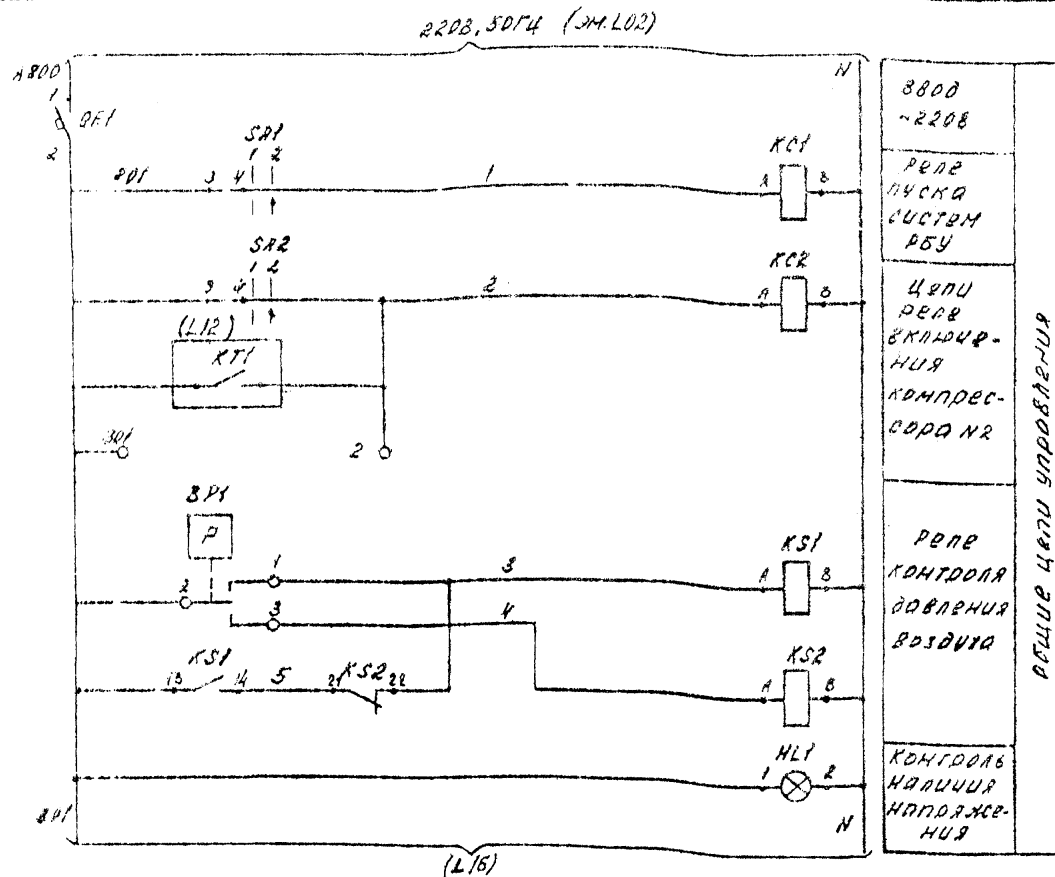 220В, 50ГЦ (ЭМ.L02)
А800
N
1
QF1
2
SA1
1 2
801
3 4
1
KC1
А В
SA2
1 2
3 4
2
KC2
А В
(L12)
KT1
801
2
BP1
P
2
1
3
3
4
KS1
А В
KS1
13 14
5
KS2
21 22
KS2
А В
HL1
1 2
801
N
(L16)
Ввод
~220В
Реле
пуска
систем
РБУ
Цепи
реле
включе-
ния
компрес-
сора N2
Реле
контроля
давления
воздуха
Контроль
наличия
напряже-
ния
Общие цепи управления